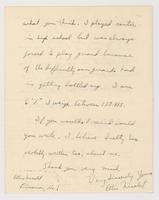 what you think. I played center
in high school but was always
forced to play guard because
of the difficulty our guards had
in getting battled up. I am
6'1" I weigh between 180-185.
If you wouldn't mind would
you write. I believe
written too, about me.
Thank you very much
Very Sincerely Yours